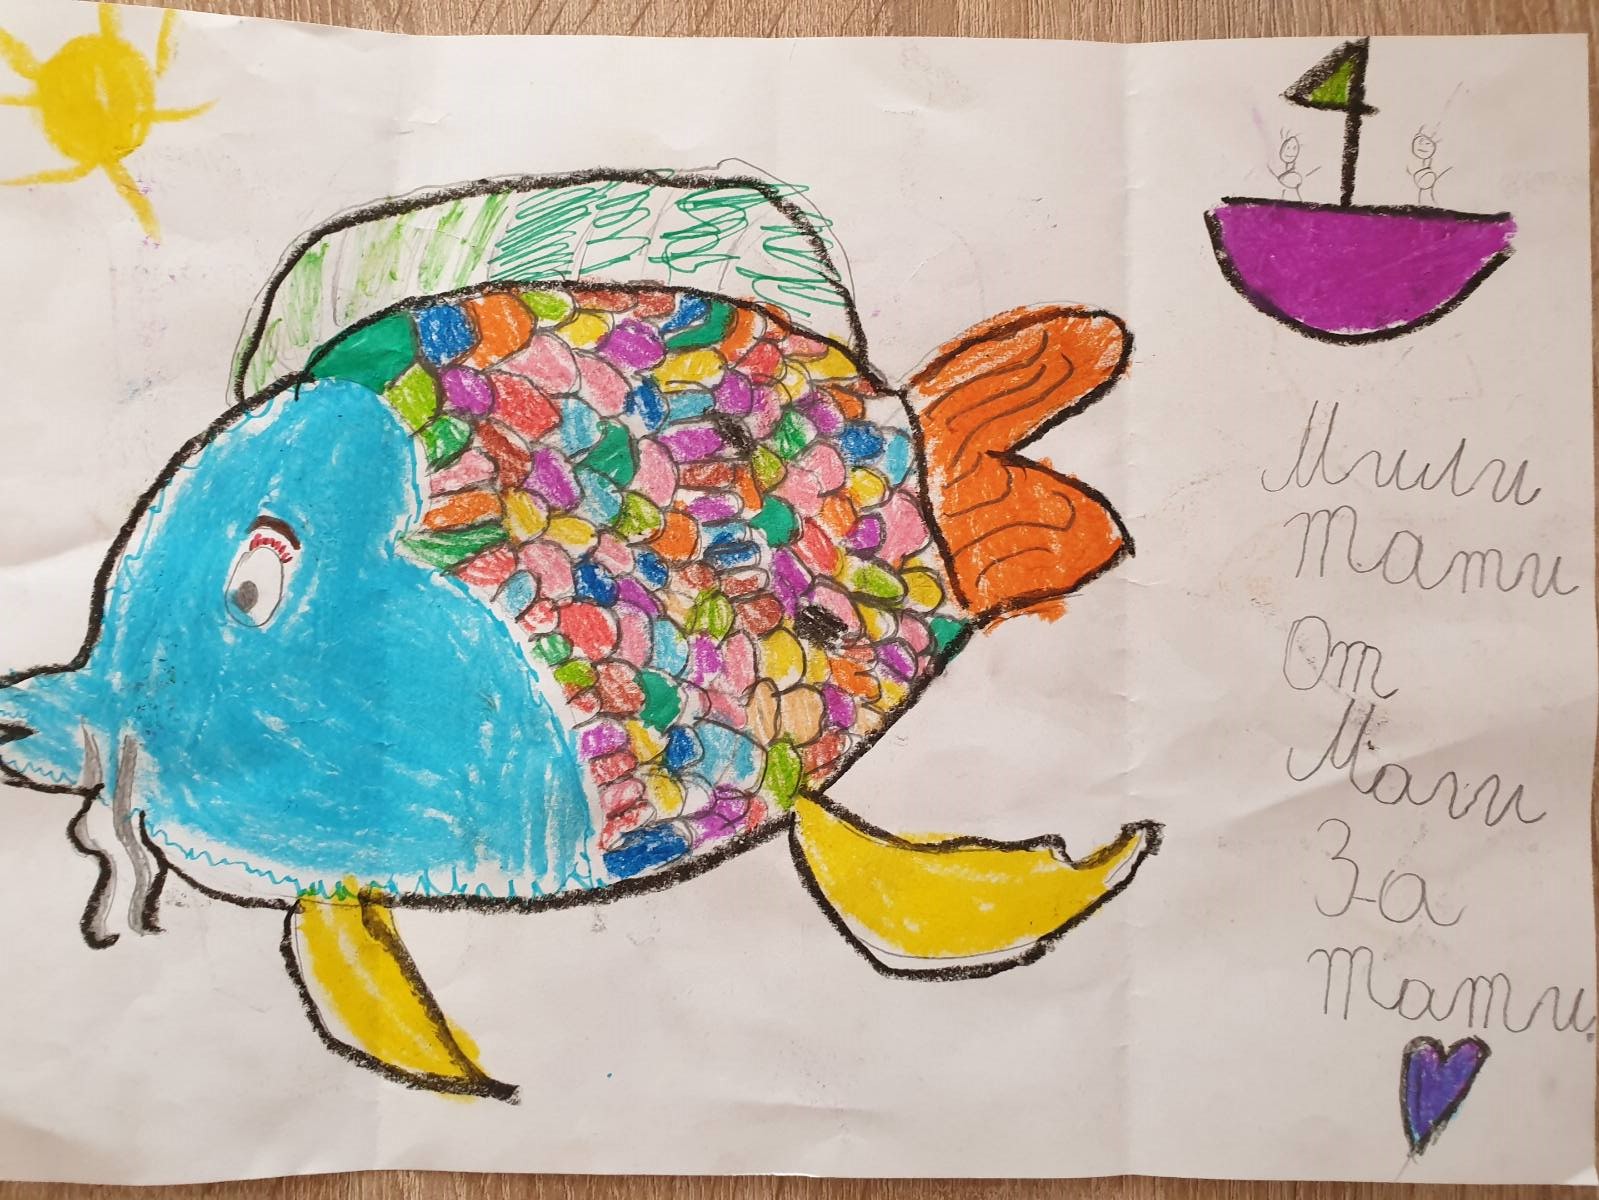 Мили
Тати
От
Маги
За
Тати.